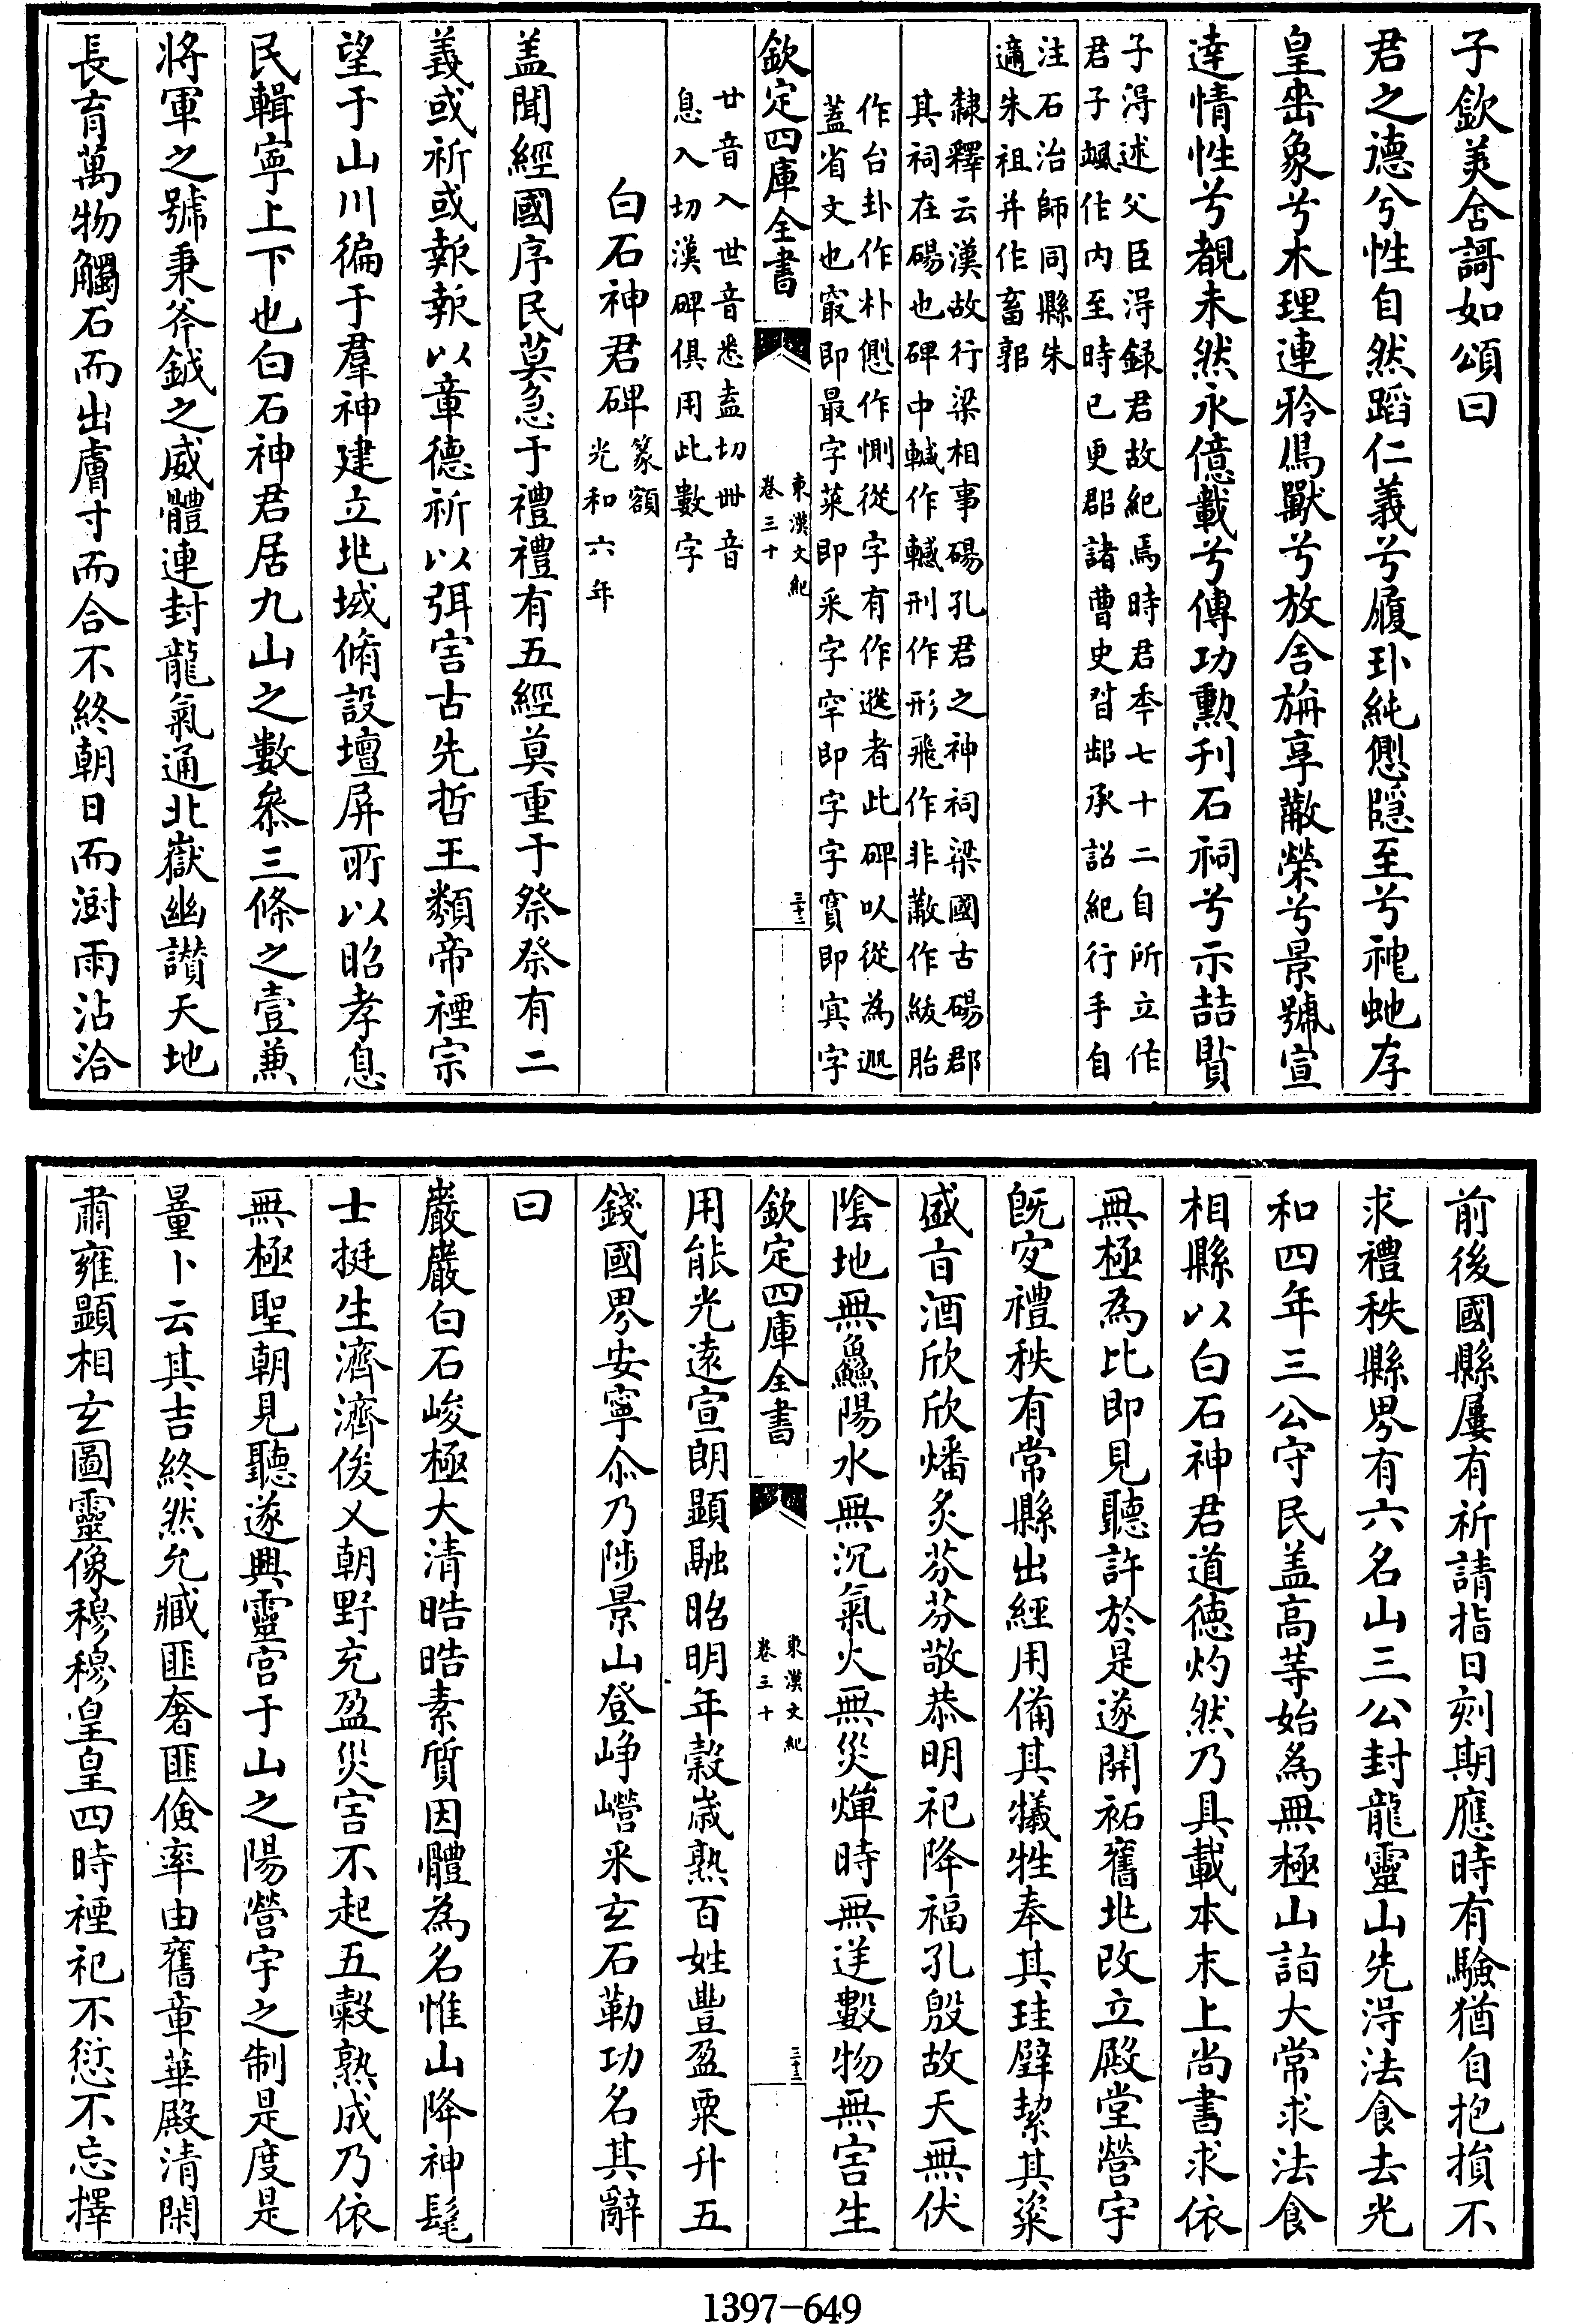 子欽美舍謌如頌曰
君之德兮性自然蹈仁義兮履卦純愢隱至兮䄆虵存
皇㟴象兮木理連矜鳥獸兮放舍旃享黻榮兮景號宣
逹情性兮覩未然永億載兮傳功勲刋石祠兮示喆賢
子淂述父臣淂録君故紀焉時君秊七十二自所立作
君子颯作内至時已更郡諸曹史㫺邺承詔紀行手自
注石治師同縣朱
適朱祖并作畜郭
隸釋云漢故行梁相事碭孔君之神祠梁國古碭郡
其祠在碭也碑中䡖作轗刑作形飛作非黻作紱胎
作台卦作朴愢作惻從字有作遳者此碑以從為迎
蓋省文也㝡即最字菜即采字罕即字字賔即寘字
欽定四庫全書
東漢文紀
卷三十
三十二
廿音入世音悉盍切卌音
息入切漢碑俱用此數字
白石神君碑
篆額
光和六年
盖聞經國序民莫急于禮禮有五經莫重于祭祭有二
義或祈或報報以章德祈以弭害古先哲王類帝禋宗
望于山川徧于羣神建立兆域脩設壇屏所以昭孝息
民輯寧上下也白石神君居九山之數叅三條之壹兼
將軍之號秉斧鉞之威體連封龍氣通北嶽幽讃天地
長育萬物觸石而出膚寸而合不終朝日而澍雨沾洽
前後國縣屢有祈請指日刻期應時有驗猶自抱損不
求禮秩縣界有六名山三公封龍靈山先淂法食去光
和四年三公守民盖高等始為無極山詣大常求法食
相縣以白石神君道德灼然乃具載本末上尚書求依
無極為比即見聽許於是遂開祏舊兆改立殿堂營宇
既㝎禮秩有常縣出經用備其犧牲奉其珪璧絜其粢
盛盲酒欣欣燔炙芬芬敬恭明祀降福孔殷故天無伏
陰地無鱻陽水無沉氣火無災燀時無逆數物無害生
欽定四庫全書
東漢文紀
卷三十
三十三
用能光遠宣朗顯融昭明年穀歳熟百姓豐盈粟升五
錢國界安寧尒乃陟景山登崢嶸采玄石勒功名其辭
曰
巖巖白石峻極大清晧晧素質因體為名惟山降神髦
士挺生濟濟俊乂朝野充盈災害不起五穀熟成乃依
無極聖朝見聽遂興靈宫于山之陽營宇之制是度是
量卜云其吉終然允臧匪奢匪儉率由舊章華殿清閑
肅雍顯相玄圖靈像穆穆皇皇四時禋祀不愆不忘擇
1397-649